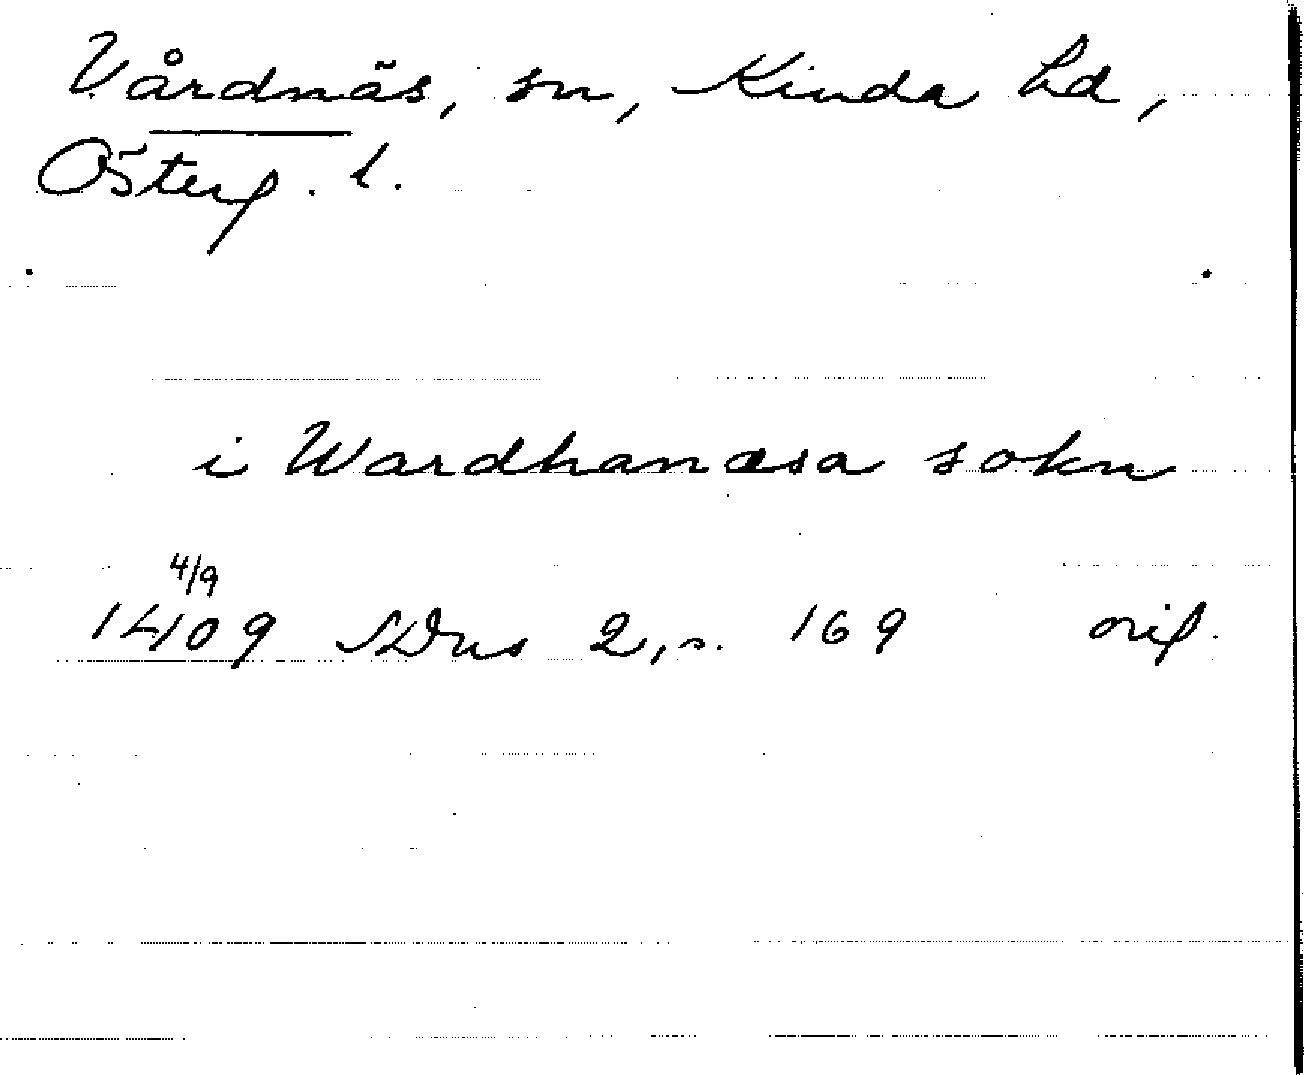 Vårdnäs, sn, Kinda hd,
Österg. l.
i Wardhanæsa sokn
4/9
1409 SDns 2, s. 169 orig.